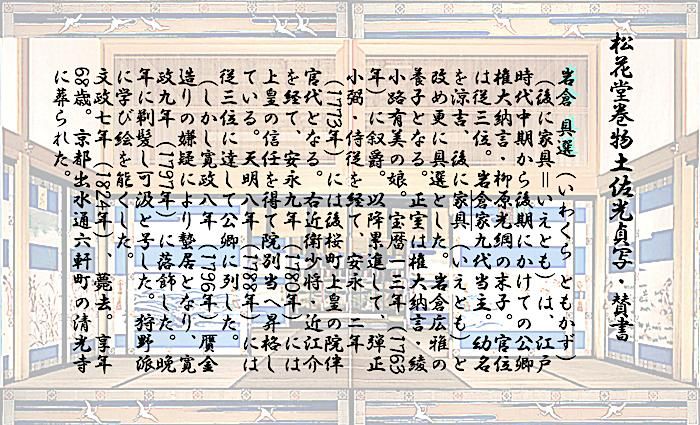 松花堂巻物土佐光貞写・賛書
岩倉 具選（いわくら ともかず）
（後に家具＝いえとも）は、江戸
時代中期から後期にかけての公卿
権大納言・柳原光綱の末子。官位
は従三位。岩倉家九代当主。幼名
を涼吉、後に家具（いえとも）と
改め更に具選とした。岩倉広雅の
養子となる。正室は権大納言・綾
小路有美の娘。宝暦一三年（1763
年）に叙爵。以降累進して、弾正
小弼・侍従を経て、安永 二年
（1773年）には後桜町上皇の院伴
官代となる。右近衛少将・近江介
を経て、安永九年（1780年）には
上皇の信任を得て院別当へ昇格し
ている。天明八年（1788年）には
従三位に達して公卿に列した。
（しかし寛政八年（1796年）贋金
造りの嫌疑により蟄居となり、寛
政九年（1797年）に落飾した。晩
年に剃髪し可汲と号した。狩野派
に学び絵を能くした。
文政七年（1824年）、薨去。享年
68歳。京都出水通六軒町の清光寺
に葬られた。